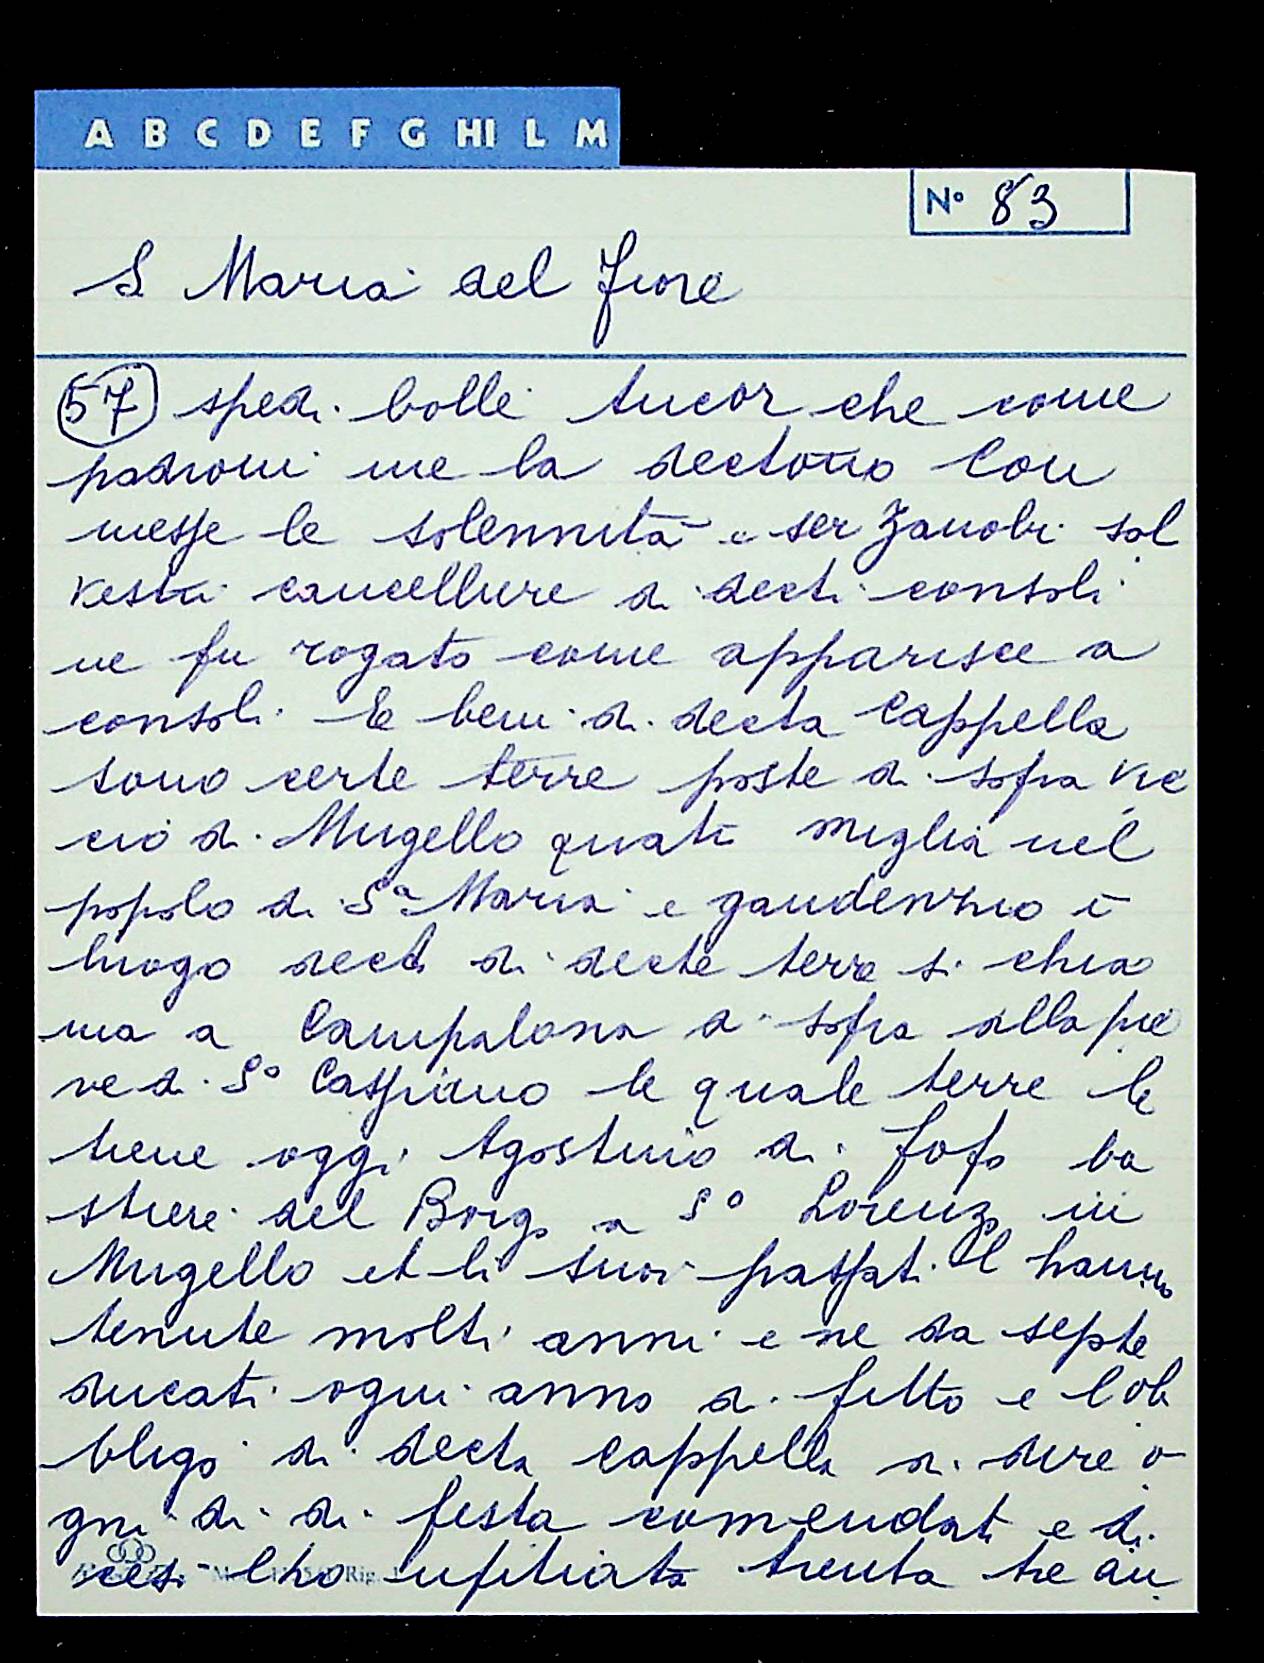 A B C D E F G HI L M
N° 83
S Maria del fiore
57 spedi bolle Ancor che come
padroni me la dectono Con
messe le solennita e ser Zanobi sal
vesti cancelliere di decti consoli
ne fu rogato come apparisce a
consoli Le beni di decta Cappella
sono certe terre poste di sopra Vic
cio di Mugello quati miglia nel
popolo di S.a Maria e gaudenzio i
luogo decti di decte terre si chia
ma a Campalona di sopra alla pie
ve di S° Casfiano le quale terre le
tiene oggi Agostino di fofo ba
stiere del Borgo a S° Lorenzo in
Mugello et li suoi passati Il hanno
tenute molti anni e ne da septe
ducati ogni anno di fitto e l ob
bligo di decta cappella di dire o
gni di di festa comendati e di
l ho ufitiata trenta tre an